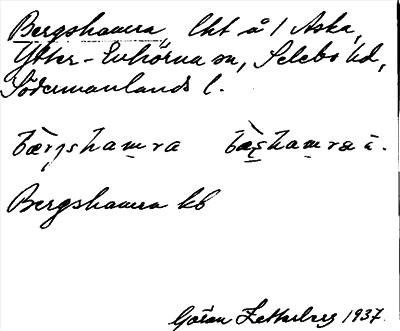 Bergshamra, lht å 1 Aska,
Ytter-Enhörna sn, Selebo hd,
Södermanlands l.
bærshamra bæshamra ä.
Bergshamra kb
Göran Zetterberg 1937.